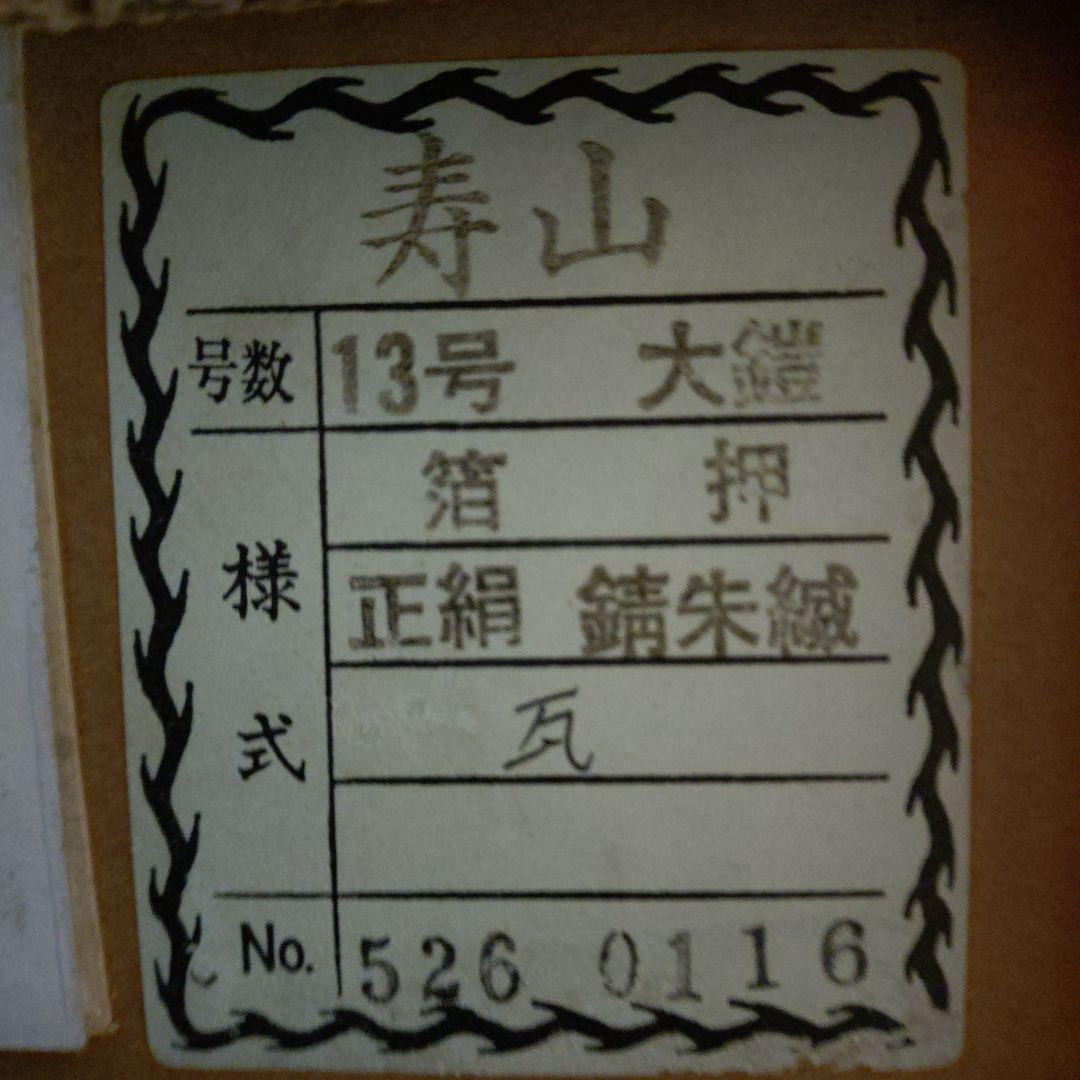 寿山
号数 13号 大鎧
箔 押
様式 正絹 錆朱縅
瓦
No. 526 0116